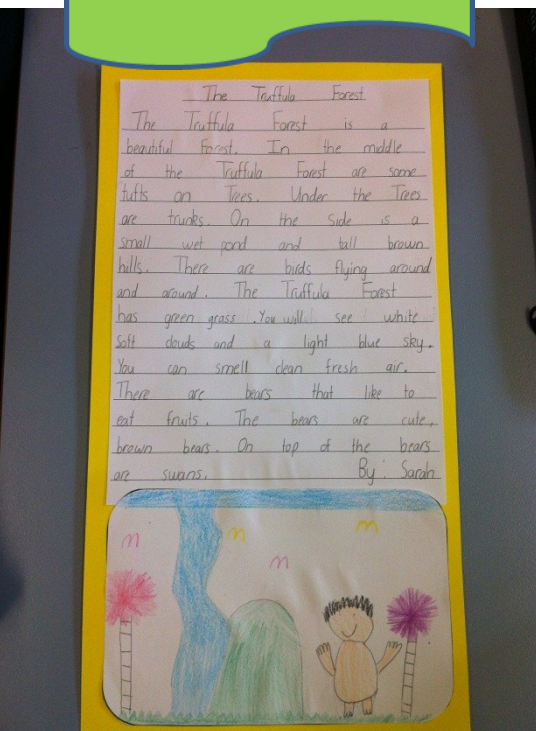 The Truffula Forest
The Truffula Forest is a
beautiful Forest. In the middle
of the Truffula Forest are some
tufts on Trees. Under the Trees
are trunks. On the Side is a
small wet pond and tall brown
hills. There are birds flying around
and around. The Truffula Forest
has green grass .You will see white
Soft clouds and a light blue sky.
You can smell clean fresh air.
There are bears that like to
eat fruits. The bears are cute,
brown bears. On top of the bears
are swans. By: Sarah